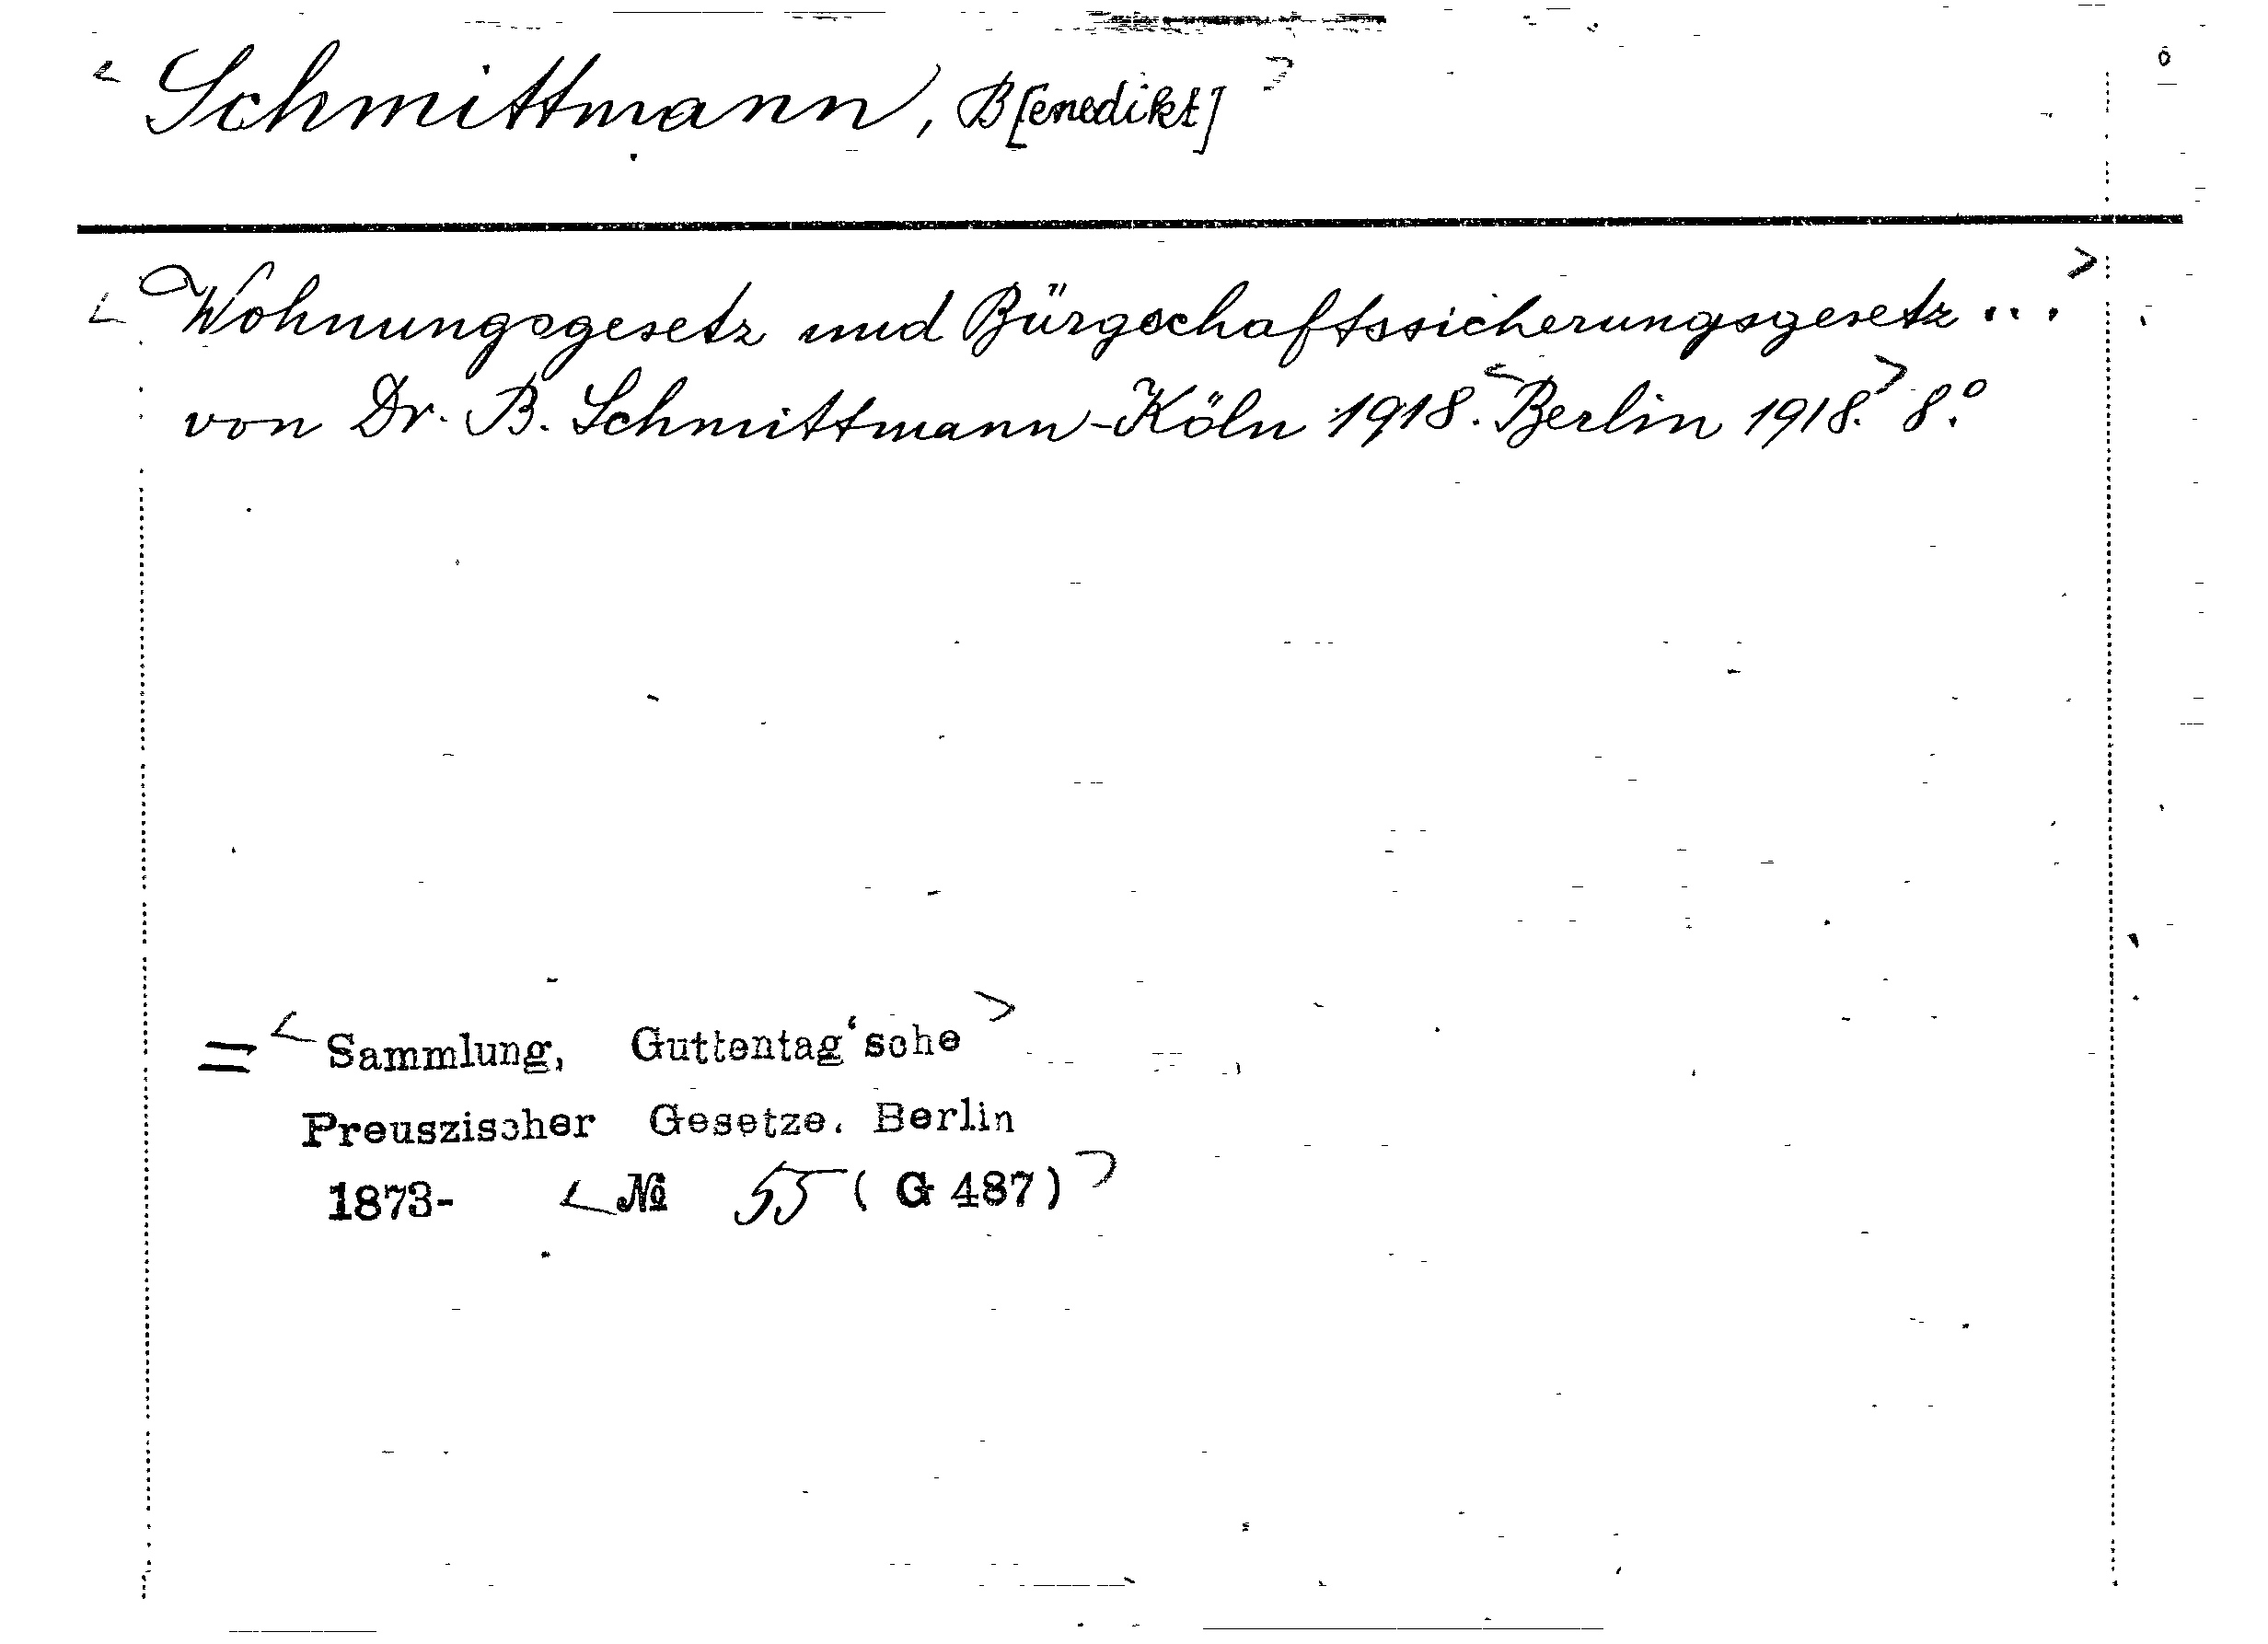 < Schmittmann, B[enedikt] >
< Wohnungsgesetz und Bürgschaftssicherungsgesetz ... >
von Dr. B. Schmittmann-Köln 1918. < Berlin 1918. > 8.°
= < Sammlung, Guttentag'sche >
Preuszischer Gesetze. Berlin
1873- < № 55 ( G 487) >